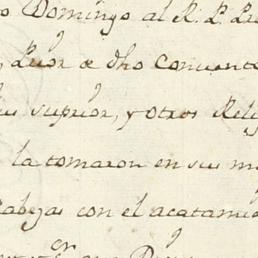 o Domingo al R. P. Pr
Prior de dho Convent
su suprior, y otros Reli
la tomaron en sus m
Cabezas con el acatami